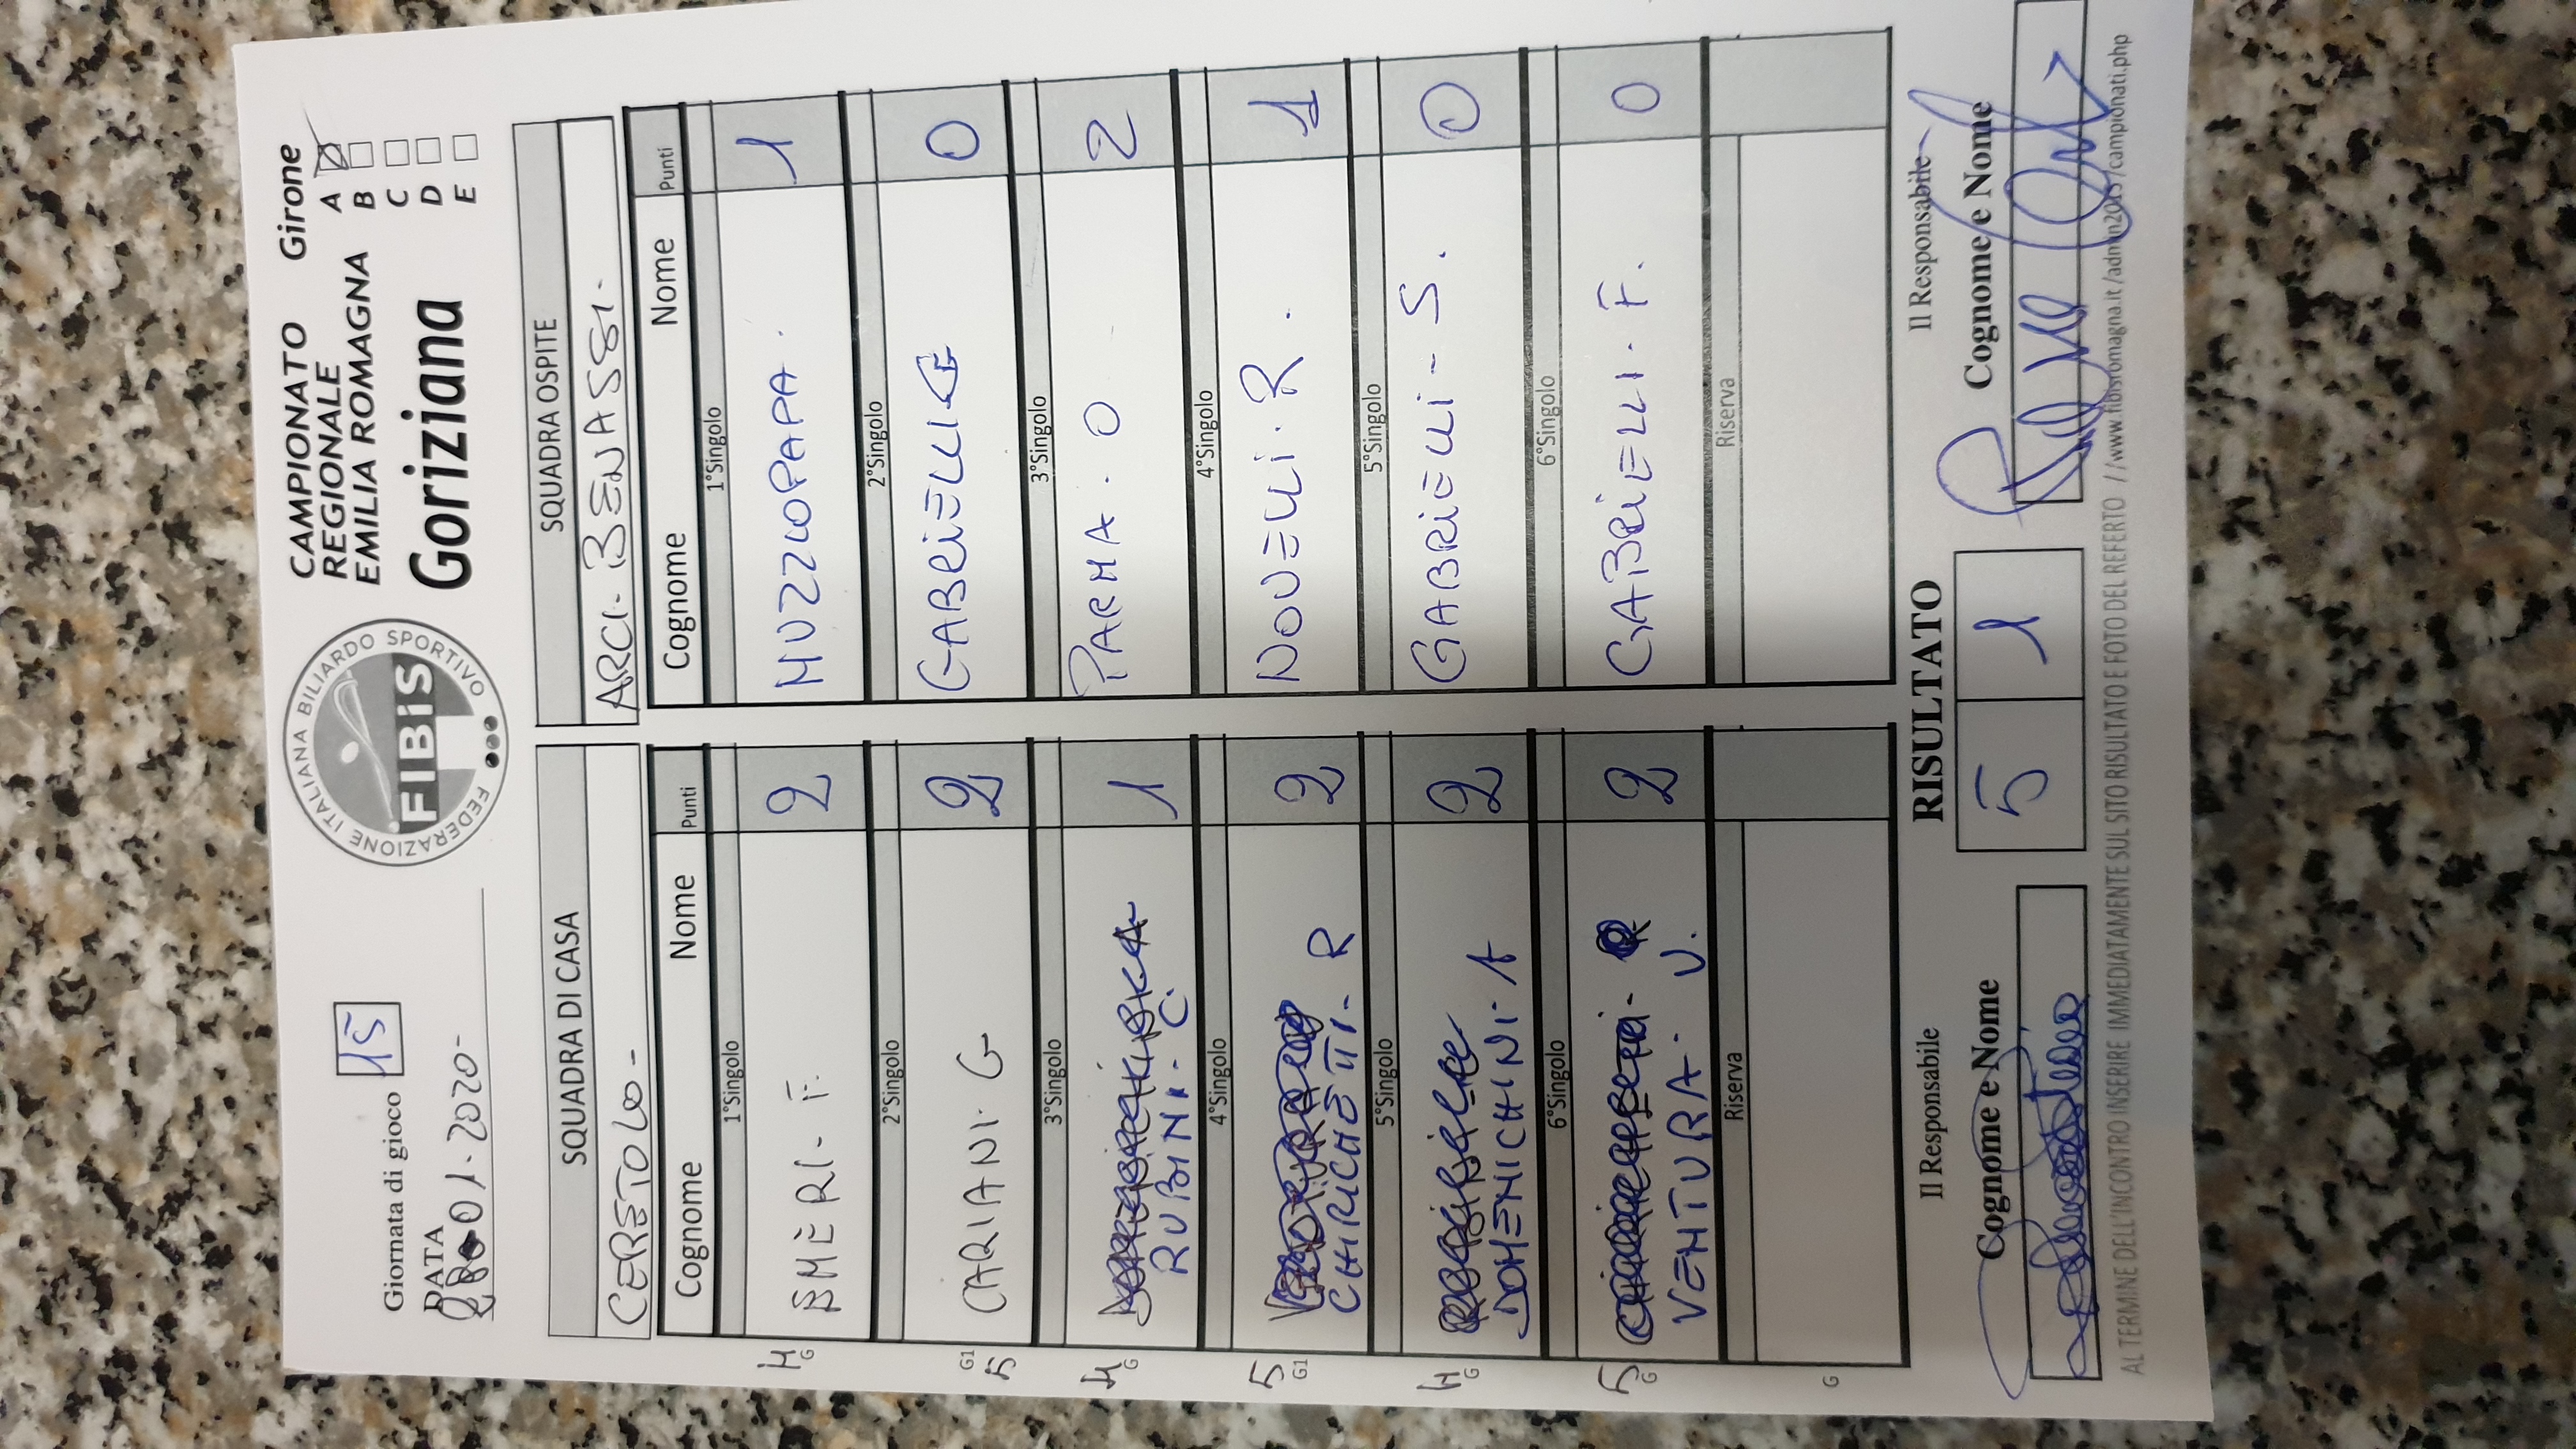 Giornata di gioco 15
DATA
01.2020-
FEDERAZIONE ITALIANA BILIARDO SPORTIVO
FIBiS
CAMPIONATO
REGIONALE
EMILIA ROMAGNA
Goriziana
Girone
A
B
C
D
E
SQUADRA DI CASA
CERETOLO-
Cognome Nome Punti
1°Singolo
SMERI. F. 2
2°Singolo
CARIANI G 2
3°Singolo
RUBINI. C. 1
4°Singolo
CHIRICHETTI. R 2
5°Singolo
DOMENICHINI. A 2
6°Singolo
VENTURA. V. 2
Riserva
4 G
G1 5
4 G
5 G1
4 G
5 G
G
SQUADRA OSPITE
ARCI. BENASSI.
Cognome Nome Punti
1°Singolo
MUZZUOPAPA. 1
2°Singolo
GABRIELLI G 0
3°Singolo
PARMA. O 2
4°Singolo
NOVELLI. R. 1
5°Singolo
GABRIELLI - S. 0
6°Singolo
GABRIELLI. F. 0
Riserva
Il Responsabile
Cognome e Nome
RISULTATO
5 1
Il Responsabile
Cognome e Nome
AL TERMINE DELL'INCONTRO INSERIRE IMMEDIATAMENTE SUL SITO RISULTATO E FOTO DEL REFERTO //www.fibisromagna.it/admin2015/campionati.php